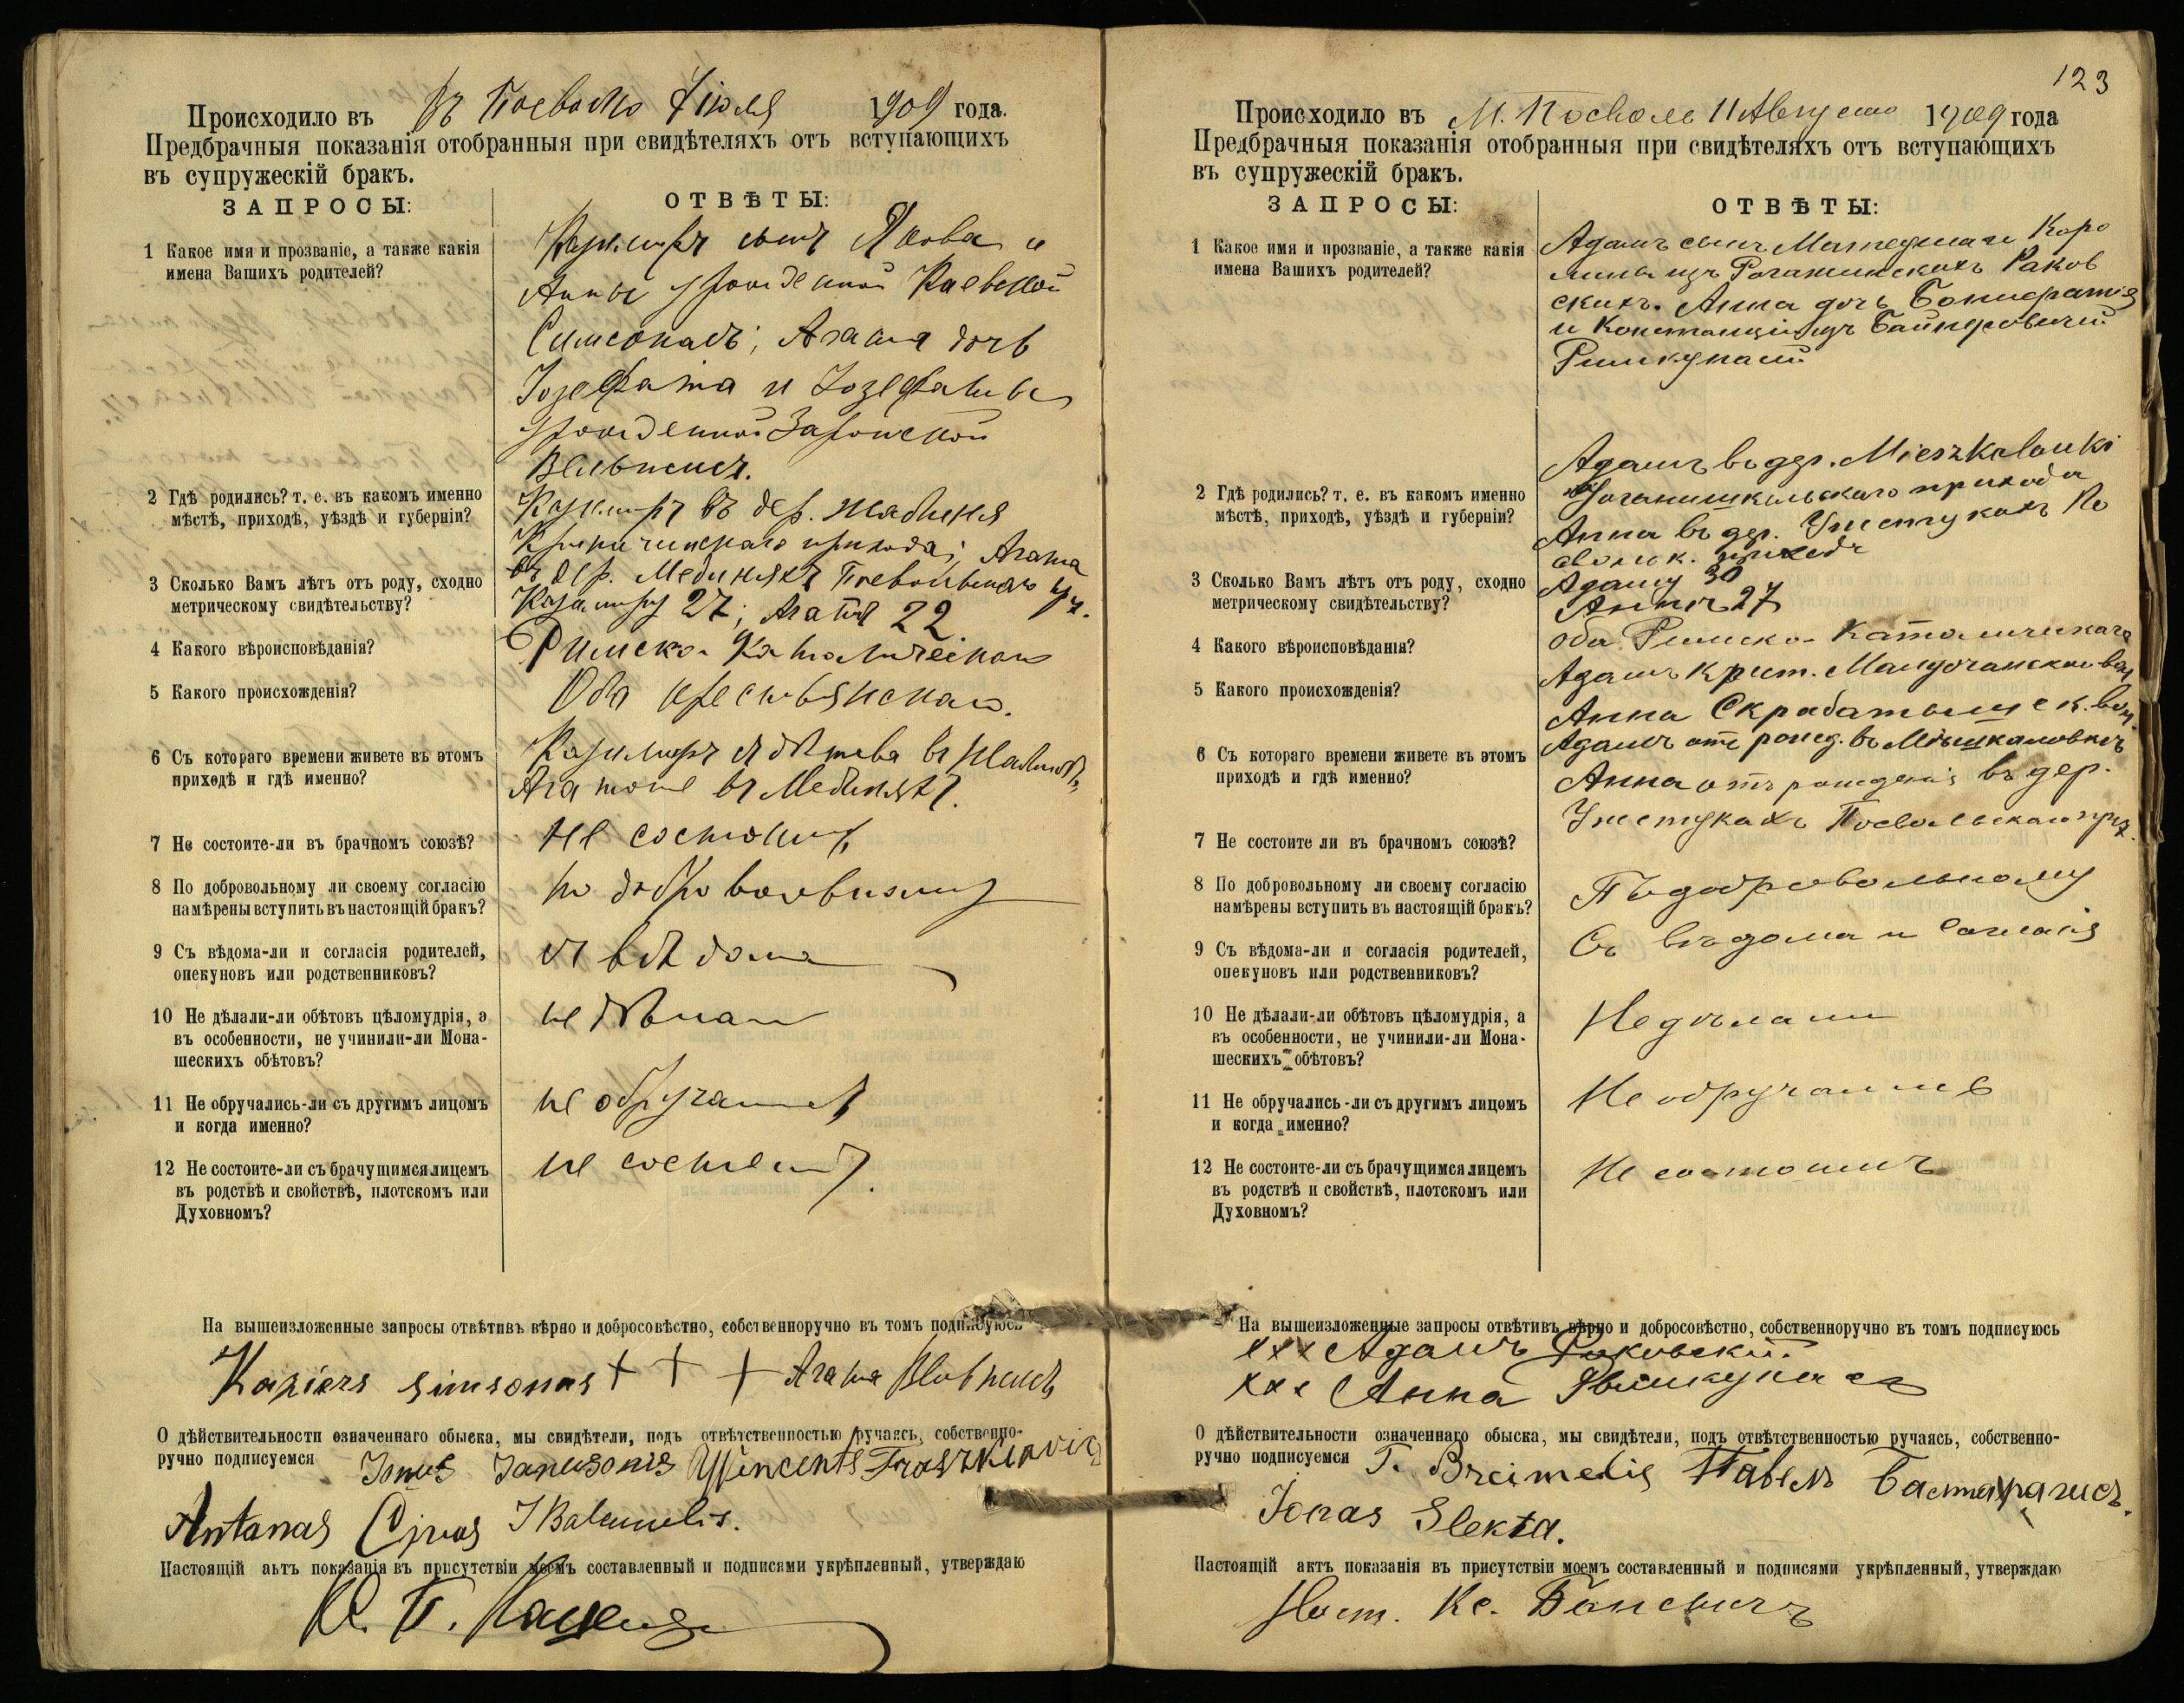 Происходило въ въ Посволѣ Іюля 1909 года.
Предбрачныя показанія отобранныя при свидѣтеляхъ отъ вступающихъ
въ супружескій бракъ.
ЗАПРОСЫ:
ОТВѢТЫ:
1 Какое имя и прозваніе, а также какія
имена Вашихъ родителей?
Казимиръ сынъ Якова и
Анны урожденной
Симсонасъ; Агата дочь
Іозефата и Іозефаты
урожденной
2 Гдѣ родились? т. е. въ какомъ именно
мѣстѣ, приходѣ, уѣздѣ и губерніи?
Казимиръ въ дер.
прихода; Агата
въ дер.
3 Сколько Вамъ лѣтъ отъ роду, сходно
метрическому свидѣтельству?
Казимиру 27; Агатѣ 22
4 Какого вѣроисповѣданія?
Римско-Католическаго
5 Какого происхожденія?
Оба крестьянскаго.
6 Съ котораго времени живете въ этомъ
приходѣ и гдѣ именно?
Казимиръ съ дѣтства въ
Агата въ
7 Не состоите-ли въ брачномъ союзѣ?
не состоимъ
8 По добровольному ли своему согласію
намѣрены вступить въ настоящій бракъ?
по добровольному
9 Съ вѣдома-ли и согласія родителей,
опекуновъ или родственниковъ?
съ вѣдома
10 Не дѣлали-ли обѣтовъ цѣломудрія, а
въ особенности, не учинили-ли Мона-
шескихъ обѣтовъ?
не дѣлали
11 Не обручались-ли съ другимъ лицомъ
и когда именно?
не обручались
12 Не состоите-ли съ брачущимся лицемъ
въ родствѣ и свойствѣ, плотскомъ или
Духовномъ?
не состоимъ.
На вышеизложенные запросы отвѣтивъ вѣрно и добросовѣстно, собственноручно въ томъ подписуюсь
Kaziers simsonas + + + Агата
О дѣйствительности означеннаго обыска, мы свидѣтели, подъ отвѣтственностью ручаясь, собственно-
ручно подписуемся Jonas Janusonis Wincents
Antanas
Настоящій актъ показанія въ присутствіи моемъ составленный и подписями укрѣпленный, утверждаю
123
Происходило въ М. Посволь 11 Августа 1909 года
Предбрачныя показанія отобранныя при свидѣтеляхъ отъ вступающихъ
въ супружескій бракъ.
ЗАПРОСЫ:
ОТВѢТЫ:
1 Какое имя и прозваніе, а также какія
имена Вашихъ родителей?
Адамъ сынъ Матеуша и Каро
лины изъ Раков
скихъ. Анна дочь Бонифатія
и Констанціи изъ
2 Гдѣ родились? т. е. въ какомъ именно
мѣстѣ, приходѣ, уѣздѣ и губерніи?
Адамъ въ дер. Mieszkalauki
прихода
Анна въ дер. По
свольск. прихода
3 Сколько Вамъ лѣтъ отъ роду, сходно
метрическому свидѣтельству?
Адаму 30
Аннѣ 27
4 Какого вѣроисповѣданія?
оба Римско-Католическаго
5 Какого происхожденія?
Адамъ крест.
Анна Скрабатышск. вол.
6 Съ котораго времени живете въ этомъ
приходѣ и гдѣ именно?
Адамъ отъ рожд. въ
Анна отъ рожденія въ дер.
Посвольскаго прих.
7 Не состоите ли въ брачномъ союзѣ?
8 По добровольному ли своему согласію
намѣрены вступить въ настоящій бракъ?
По добровольному
9 Съ вѣдома-ли и согласія родителей,
опекуновъ или родственниковъ?
Съ вѣдома и согласія
10 Не дѣлали-ли обѣтовъ цѣломудрія, а
въ особенности, не учинили-ли Мона-
шескихъ обѣтовъ?
Не дѣлали
11 Не обручались-ли съ другимъ лицомъ
и когда именно?
Не обручались
12 Не состоите-ли съ брачущимся лицемъ
въ родствѣ и свойствѣ, плотскомъ или
Духовномъ?
Не состоимъ
На вышеизложенные запросы отвѣтивъ вѣрно и добросовѣстно, собственноручно въ томъ подписуюсь
xxx Адамъ Раковский
xxx Анна
О дѣйствительности означеннаго обыска, мы свидѣтели, подъ отвѣтственностью ручаясь, собственно-
ручно подписуемся T. Breimelis Павелъ
Jonas Slekta.
Настоящій актъ показанія въ присутствіи моемъ составленный и подписями укрѣпленный, утверждаю
Наст. Кс.